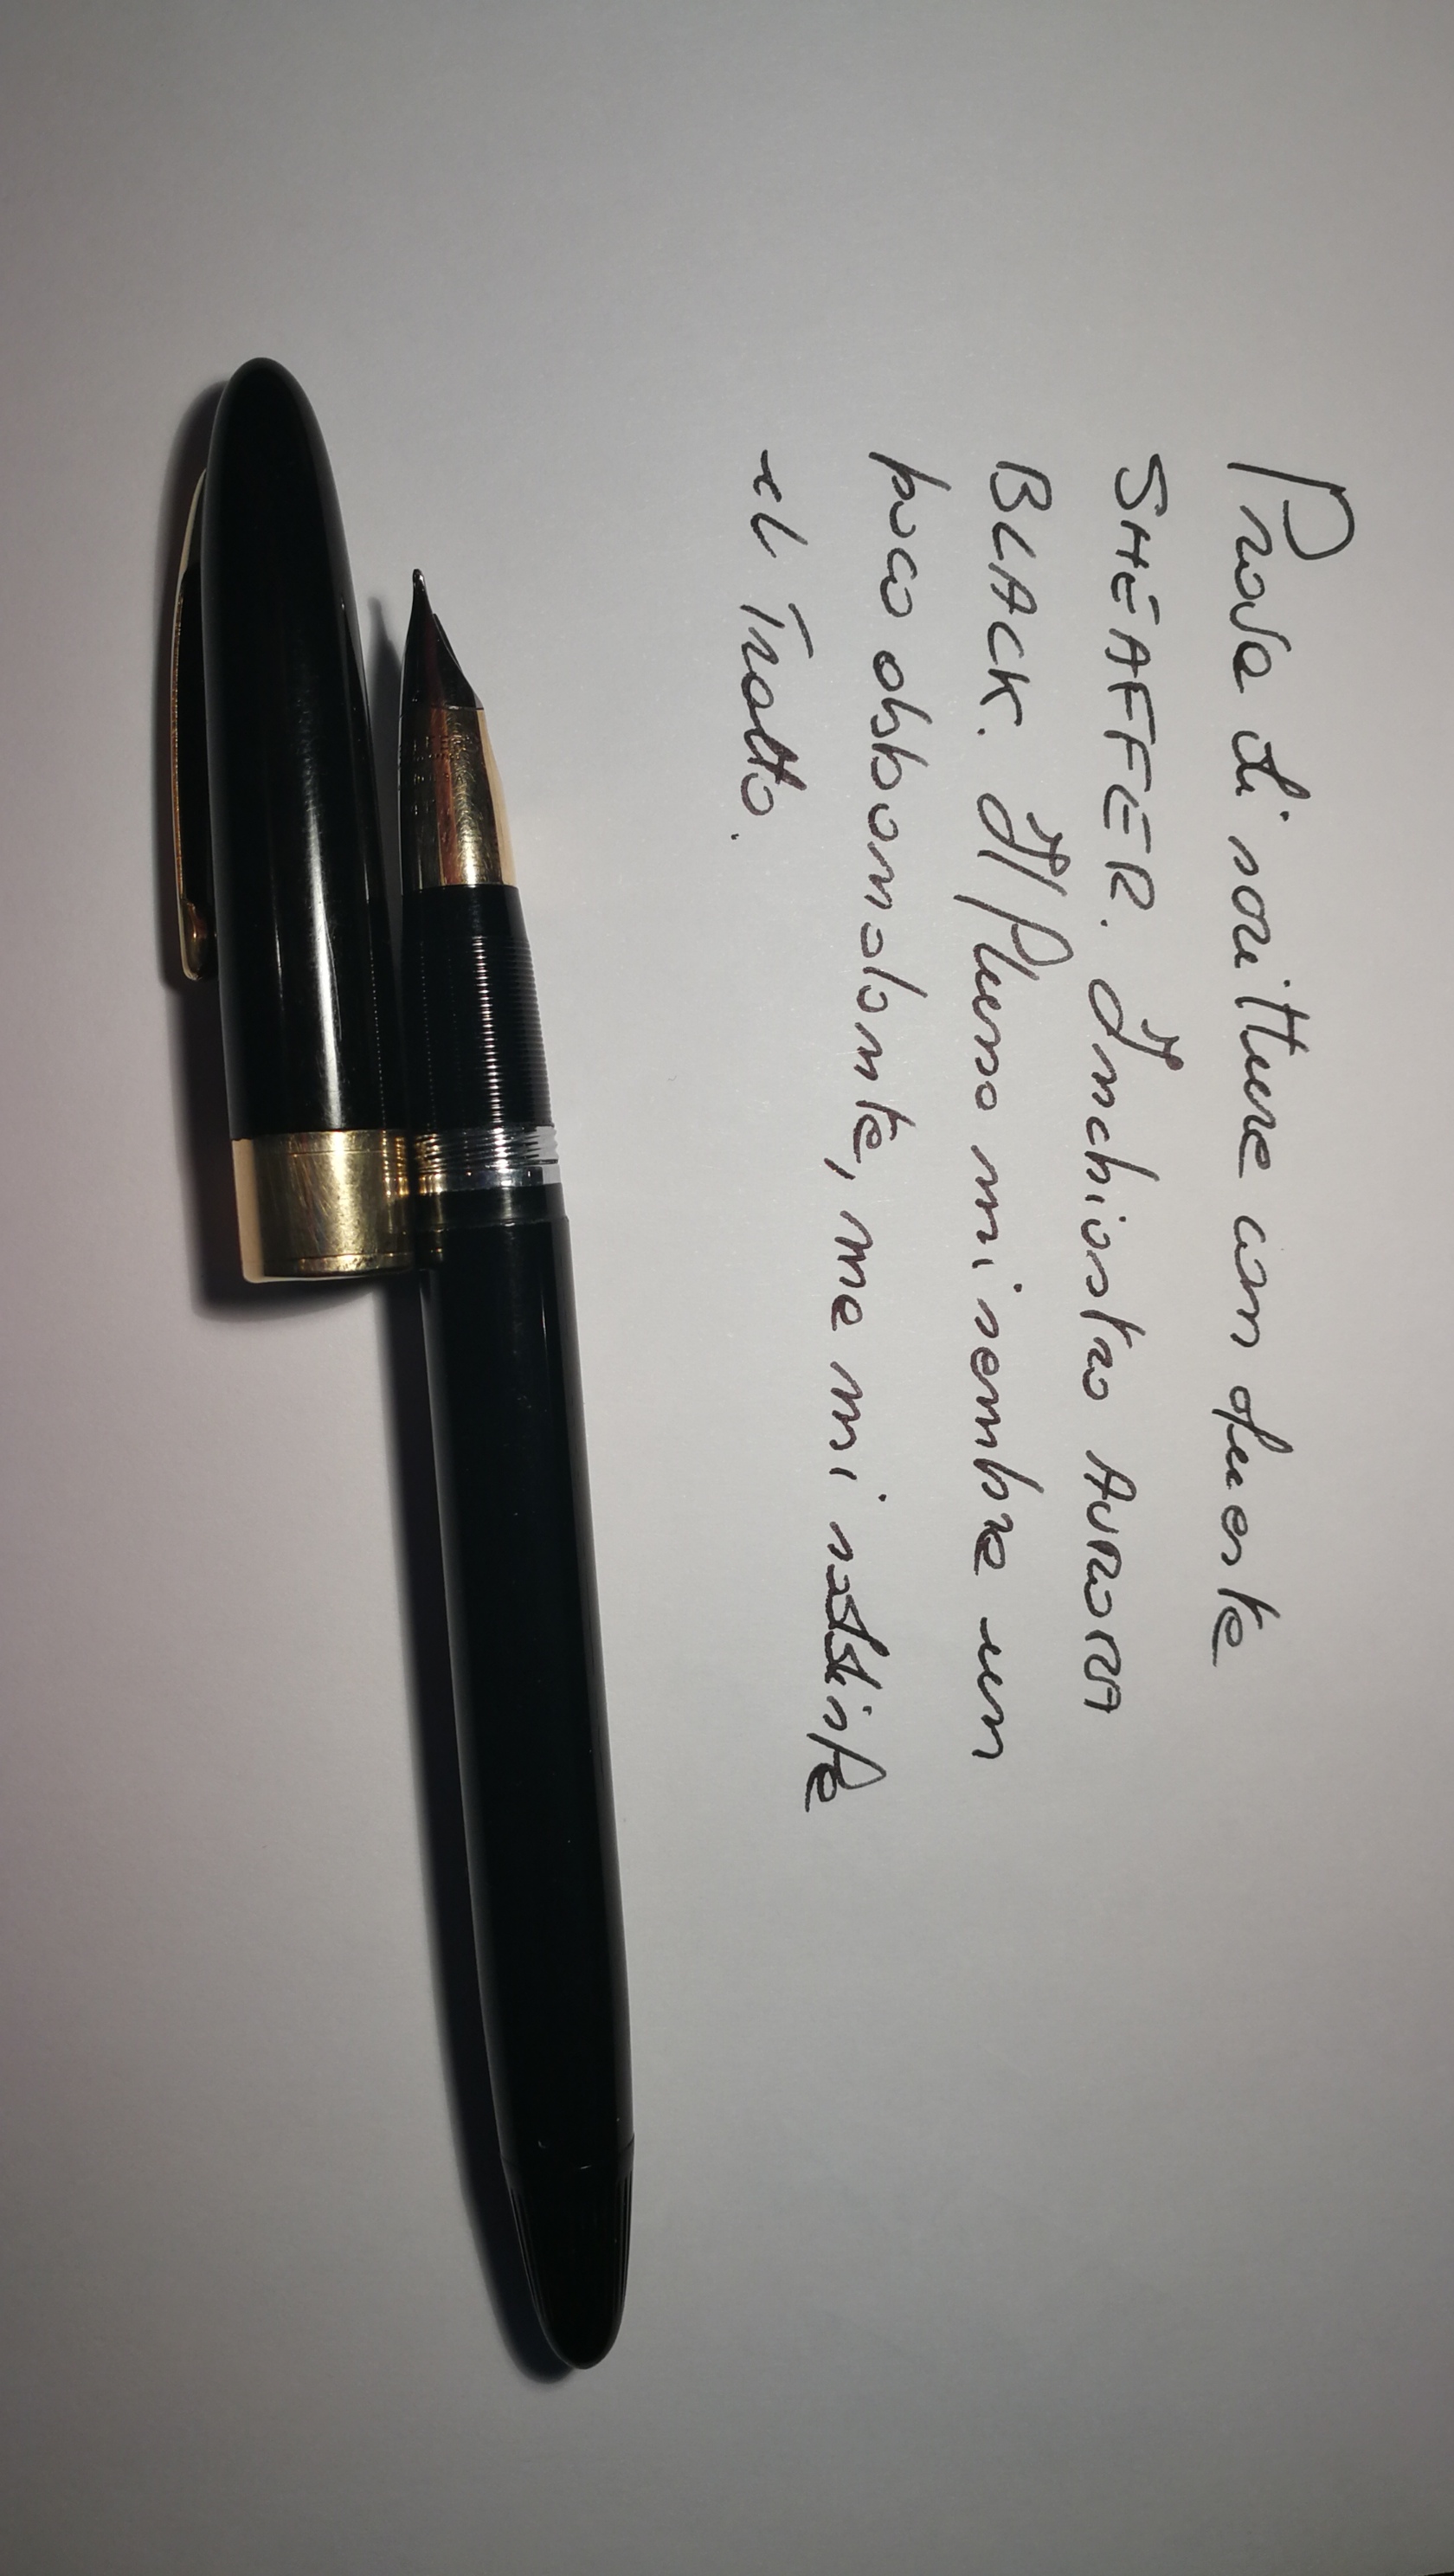 Prova di scrittura con questa
SHEAFFER. Inchiostro AURORA
BLACK. Il flusso mi sembra un
poco abbondante, ma mi soddisfa
il Tratto.